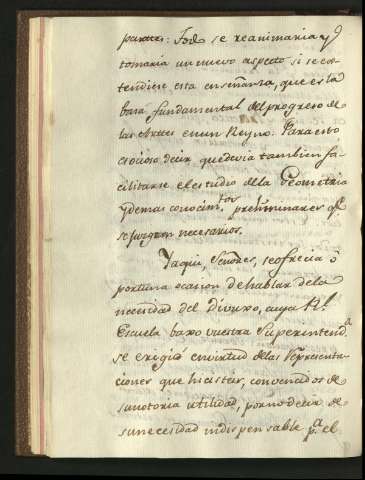 partes: Todo se reanimaria y
tomaria un nuevo aspecto si se ex-
tendiese esta enseñanza, que es la
basa fundamental del progreso de
las Artes en un Reyno. Para esto
es ocioso decir que devia tambien fa-
cilitarse el estudio de la Geometria
y demas conocim.tos preliminares q.e
se juzgan necesarios.
Y aqui, Señores, se ofrecia o-
portuna ocasion de hablar de la
necesidad del Divuxo, cuya R.l
Escuela baxo vuestra Superintend.a
se erigió en virtud de las Representa-
ciones que hicisteis, convencidos de
su notoria utilidad, por no decir de
su necesidad indispensable p.a el